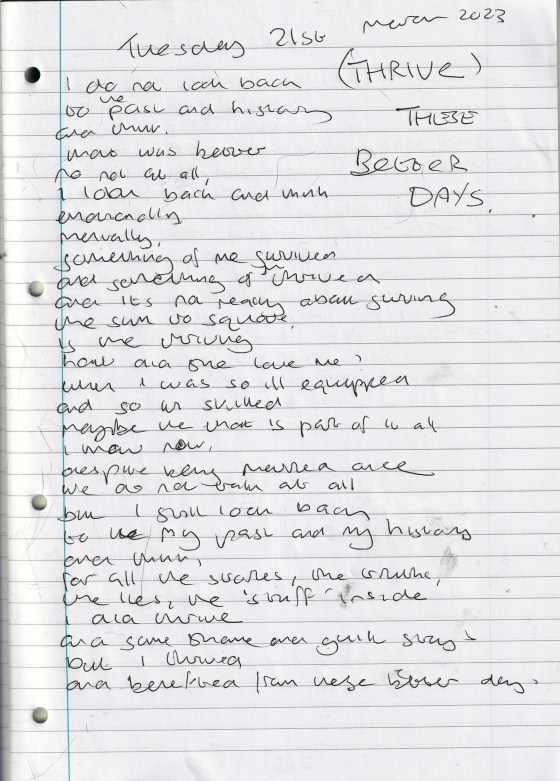 Tuesday 21st March 2023
(THRIVE)
THESE
BETTER
DAYS.
I do not look back
to the past and history
and think.
that was better
no not at all,
I look back and think
emotionally
mentally,
something of me survived
and something of thrived
and its not really about surviving
the sum to square,
is the thriving
how did one love me?
when I was so ill equipped
and so un skilled
maybe the that is part of it all
I know now,
despite being married once
we do not talk at all
but I still look back
to the my past and my history
and think,
for all the scares, the
the lies, the 'stuff' inside
I did thrive
and some shame and guilt stays
but I thrived
and benefited from these better days.